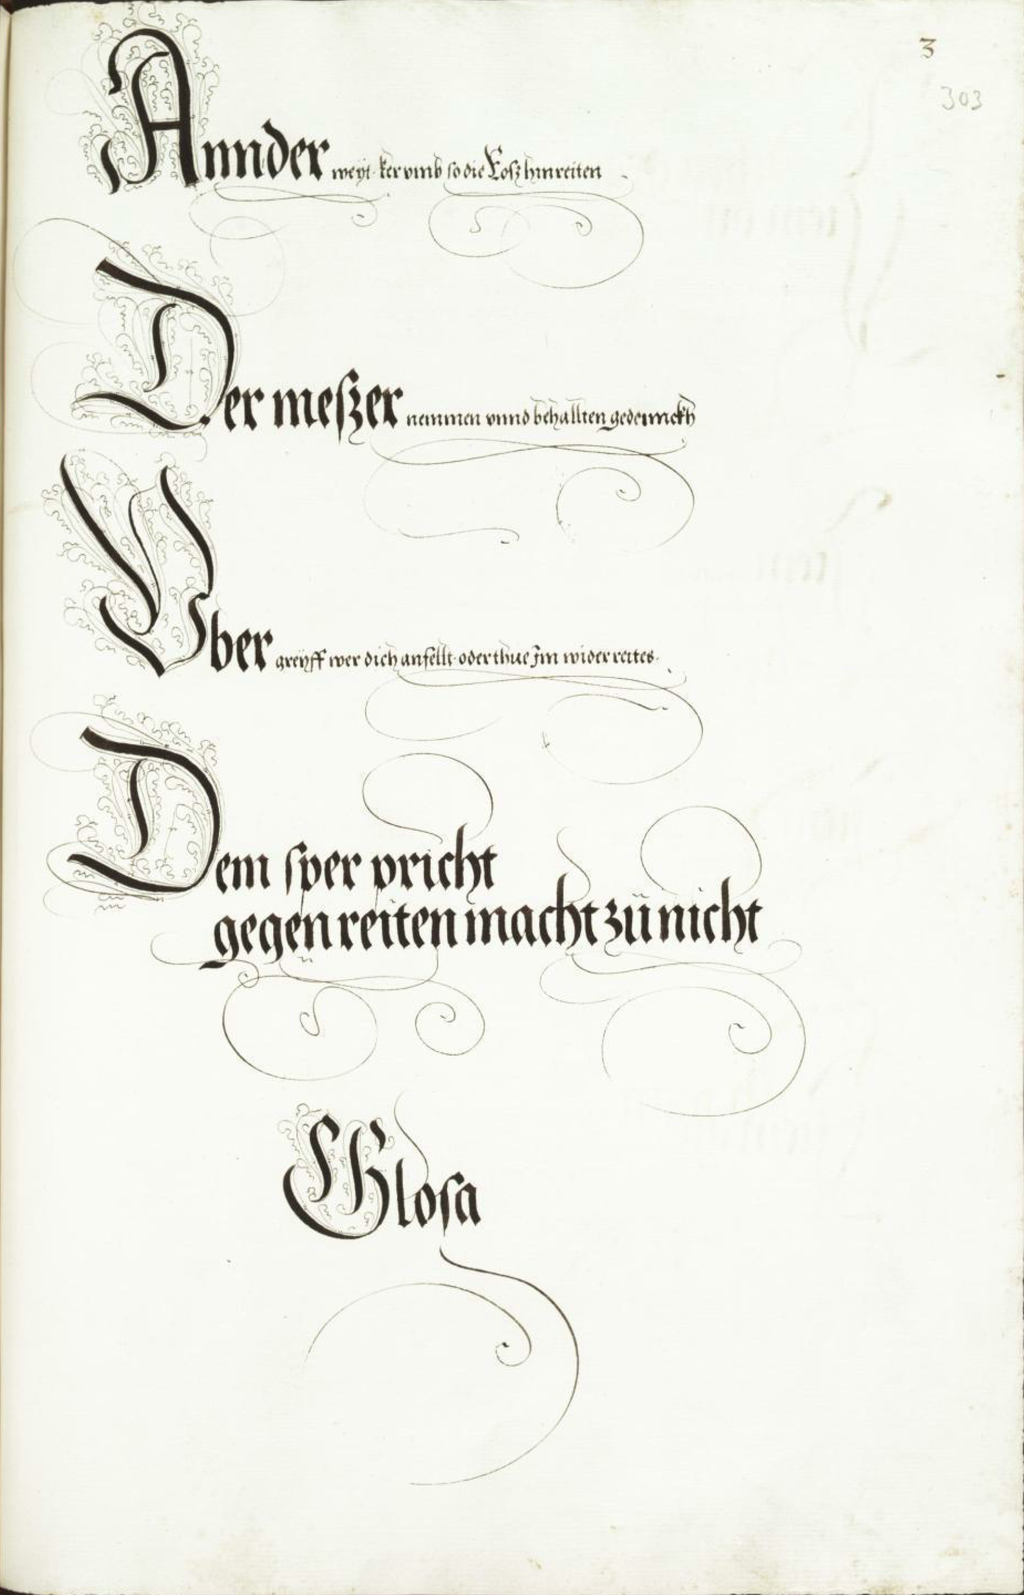 3
303
Annder weyt ker vmb so die Rosz hinreiten
Der meszer nemmen vnnd behallten gedennckh
Vber greyff wer dich anfellt oder thue Jm wider reites
Dem sper pricht
gegen reiten macht zü nicht
Glosa